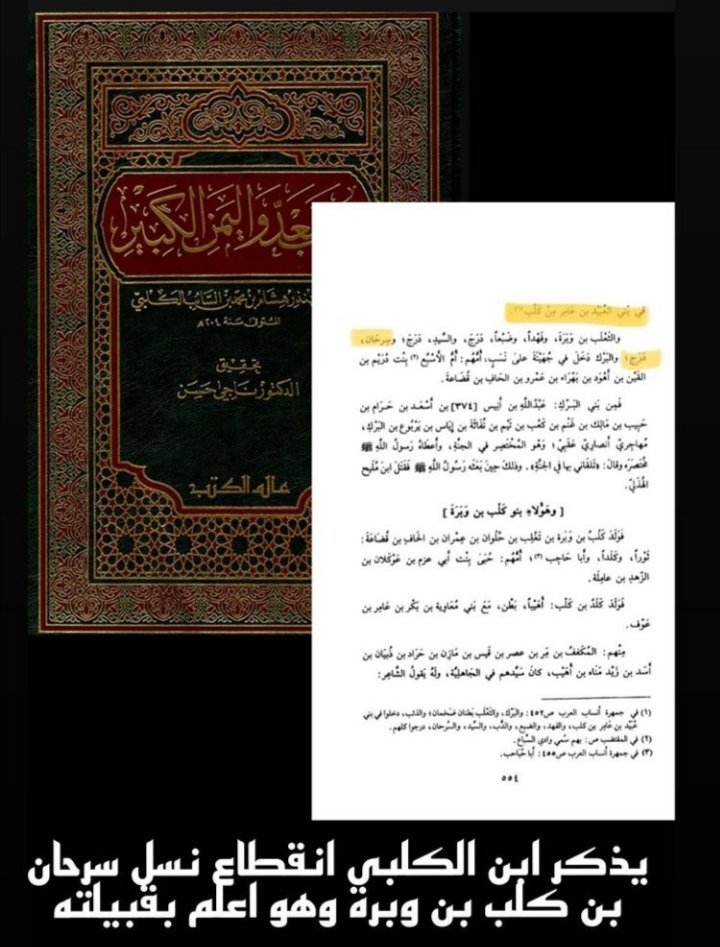 معد واليمن الكبير
المنذر هشام بن محمد بن السائب الكلبي
المتوفى سنة ٢٠٤هـ
تحقيق
الدكتور ناجي حسن
عالم الكتب
في بَني العُبَيْد بن عَامِر مِنْ كَلْب (١).
والثَعْلَب بن وَبَرَةَ، وفَهْداً، وضَبْعاً، دَرَجَ، والسِيدِ، دَرَجَ؛ وسِرحَان،
دَرَجَ؛ والبَرْك دَخَلَ في جُهَيْنَةَ على نَسَبٍ، أُمُّهُم: أُمُّ الأَسْبُعِ (٢) بِنْت دُرَيْم بن
القَيْن بن أَهْوَد بن بَهْرَاء بن عَمْرو بن الحَافِ بن قُضَاعَةَ.
فَمِن بَني البَـرْكِ: عَبْدُاللهِ بن أُنَيس [٣٧٤] بن أَسْعَـد بن حَرَام بن
حَبِيب بن مَالِك بن غَنْم بن كَعْب بن تَيْم بن نُفَاثَة بن إيَاس بن يَرْبُوع بن البَرْكِ،
مُهاجِريّ أنصاريّ عَقَبيّ؛ وَهُو المُخْتَصِر في الجنَّةِ، وأعطَاهُ رَسولُ اللهِ ﷺ
مُخْتَصَرَه وقالَ: «تَلْقَاني بها في الجنَّةِ». وذلكَ حينَ بَعَثَه رَسولُ اللهِ ﷺ فَقَتَلَ ابنَ مُلَيح
الهُذَليّ.
[ وهَؤُلاءِ بنُو كَلْب بن وَبَرَةَ ]
فَوَلَدَ كَلْبُ بن وَبَرة بن تَغْلِب بن حُلْوان بن عِمْران بن الحَاف بن قُضَاعَةَ:
ثَوْراً، وكَلَداً، وأبا حَاجِب (٣)؛ أُمُّهُم: حُبَىّ بِنْت أبي عرَم بن عَوْكَلان بن
الزَّهدِ بن عامِلَةَ.
فَوَلَدَ كَلَدُ بن كَلْب: أُهَيْباً، بَطْن، مَعَ بَني مُعَاوِية بن بَكْر بن عَامِر بن
عَوْف.
مِنْهم: المُكَفِّفُ بن مُر بن عصر بن قَيس بن مَازِن بن حَرَاد بن ذُبيَان بن
أَسَد بن زَيْد مَنَاه بن أُهَيْب، كانَ سَيِّدهم في الجَاهليَّة، ولَهُ يَقولُ الشَّاعِر:
(١) في جمهرة أنساب العرب ص٤٥٢: والبَرْك، والثَعْلَب بطنان ضخمان؛ والذئب، دخلوا في بني
عُبَيْد بن عَامِر بن كلب، والفهد، والضبع، والدُّب، والسِّيد، والسِّرحان، درجوا كلهم.
(٢) في المقتضب ص: بهم سُمي وادي السِّبَاع.
(٣) في جمهرة أنساب العرب ص٤٥٥: أبا حُبَاحِب.
٥٥٤
يذكر ابن الكلبي انقطاع نسل سرحان
بن كلب بن وبرة وهو اعلم بقبيلته